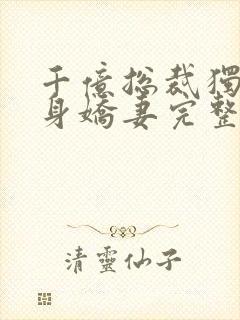 千億总裁獨
身嬌妻完整
清靈仙子